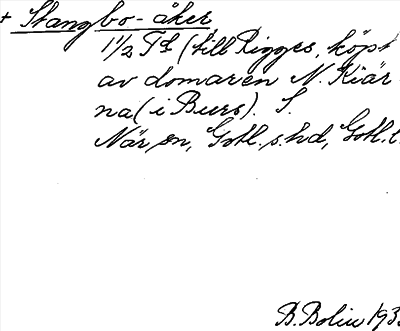 + Stangbo-åker
1 1/2 Td (till Rigges, köpt
av domaren N. Kiär-
na (i Burs). S.
När sn, Gotl. s. hd, Gotl. l.
B. Bolin 193